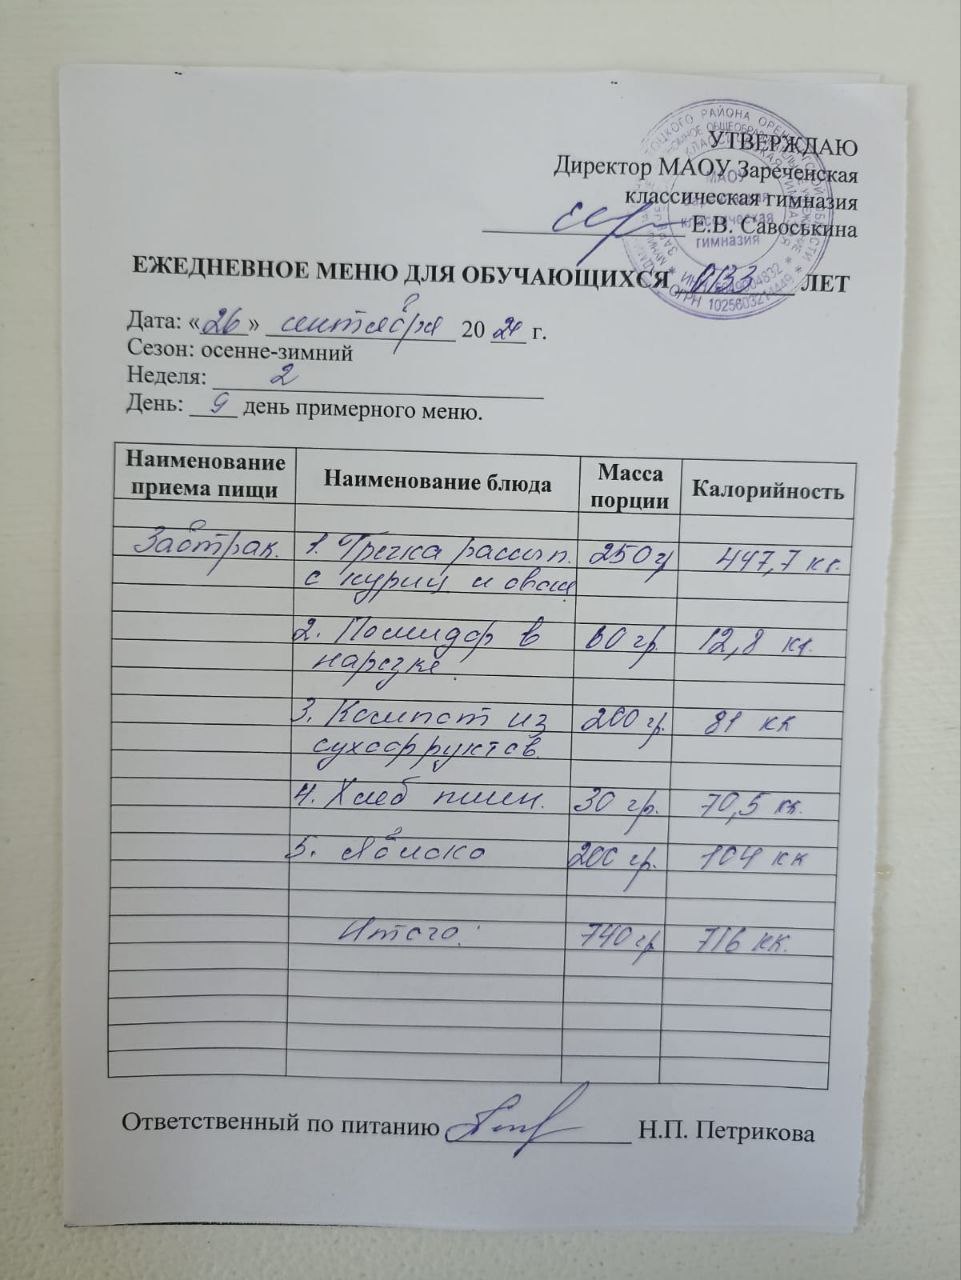 УТВЕРЖДАЮ
Директор МАОУ Зареченская
классическая гимназия
Е.В. Савоськина
ЕЖЕДНЕВНОЕ МЕНЮ ДЛЯ ОБУЧАЮЩИХСЯ ОВЗ ЛЕТ
Дата: «26» сентября 2024 г.
Сезон: осенне-зимний
Неделя: 2
День: 9 день примерного меню.
Наименование приема пищи Наименование блюда Масса порции Калорийность
Завтрак. 1. Гречка рассып. 250 г 447,7 кк.
с куриц и овощ
2. Помидор в 60 гр. 12,8 кк.
нарезке.
3. Компот из 200 гр. 81 кк
сухофруктов.
4. Хлеб пшен. 30 гр. 70,5 кк.
5. Яблоко 200 гр. 104 кк
Итого: 740 гр 716 кк.
Ответственный по питанию Н.П. Петрикова